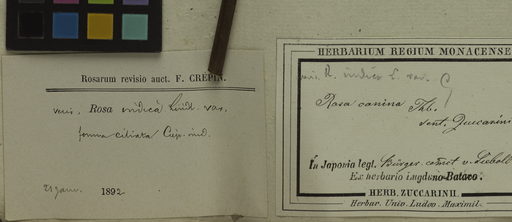 Rosarum revisio auct. F. CREPIN.
Rosa indica Lindl. var.
forma ciliata Crép. ined.
21 janv. 1892
HERBARIUM REGIUM MONACENSE
R. indica L. var. ?
Rosa canina Thb.
sent. Zuccarini
In Japonia legt. Bürger comit v. Siebold
Ex herbario Lugduno-Batavo.
HERB. ZUCCARINII.
Herbar. Univ. Ludov. Maximil.